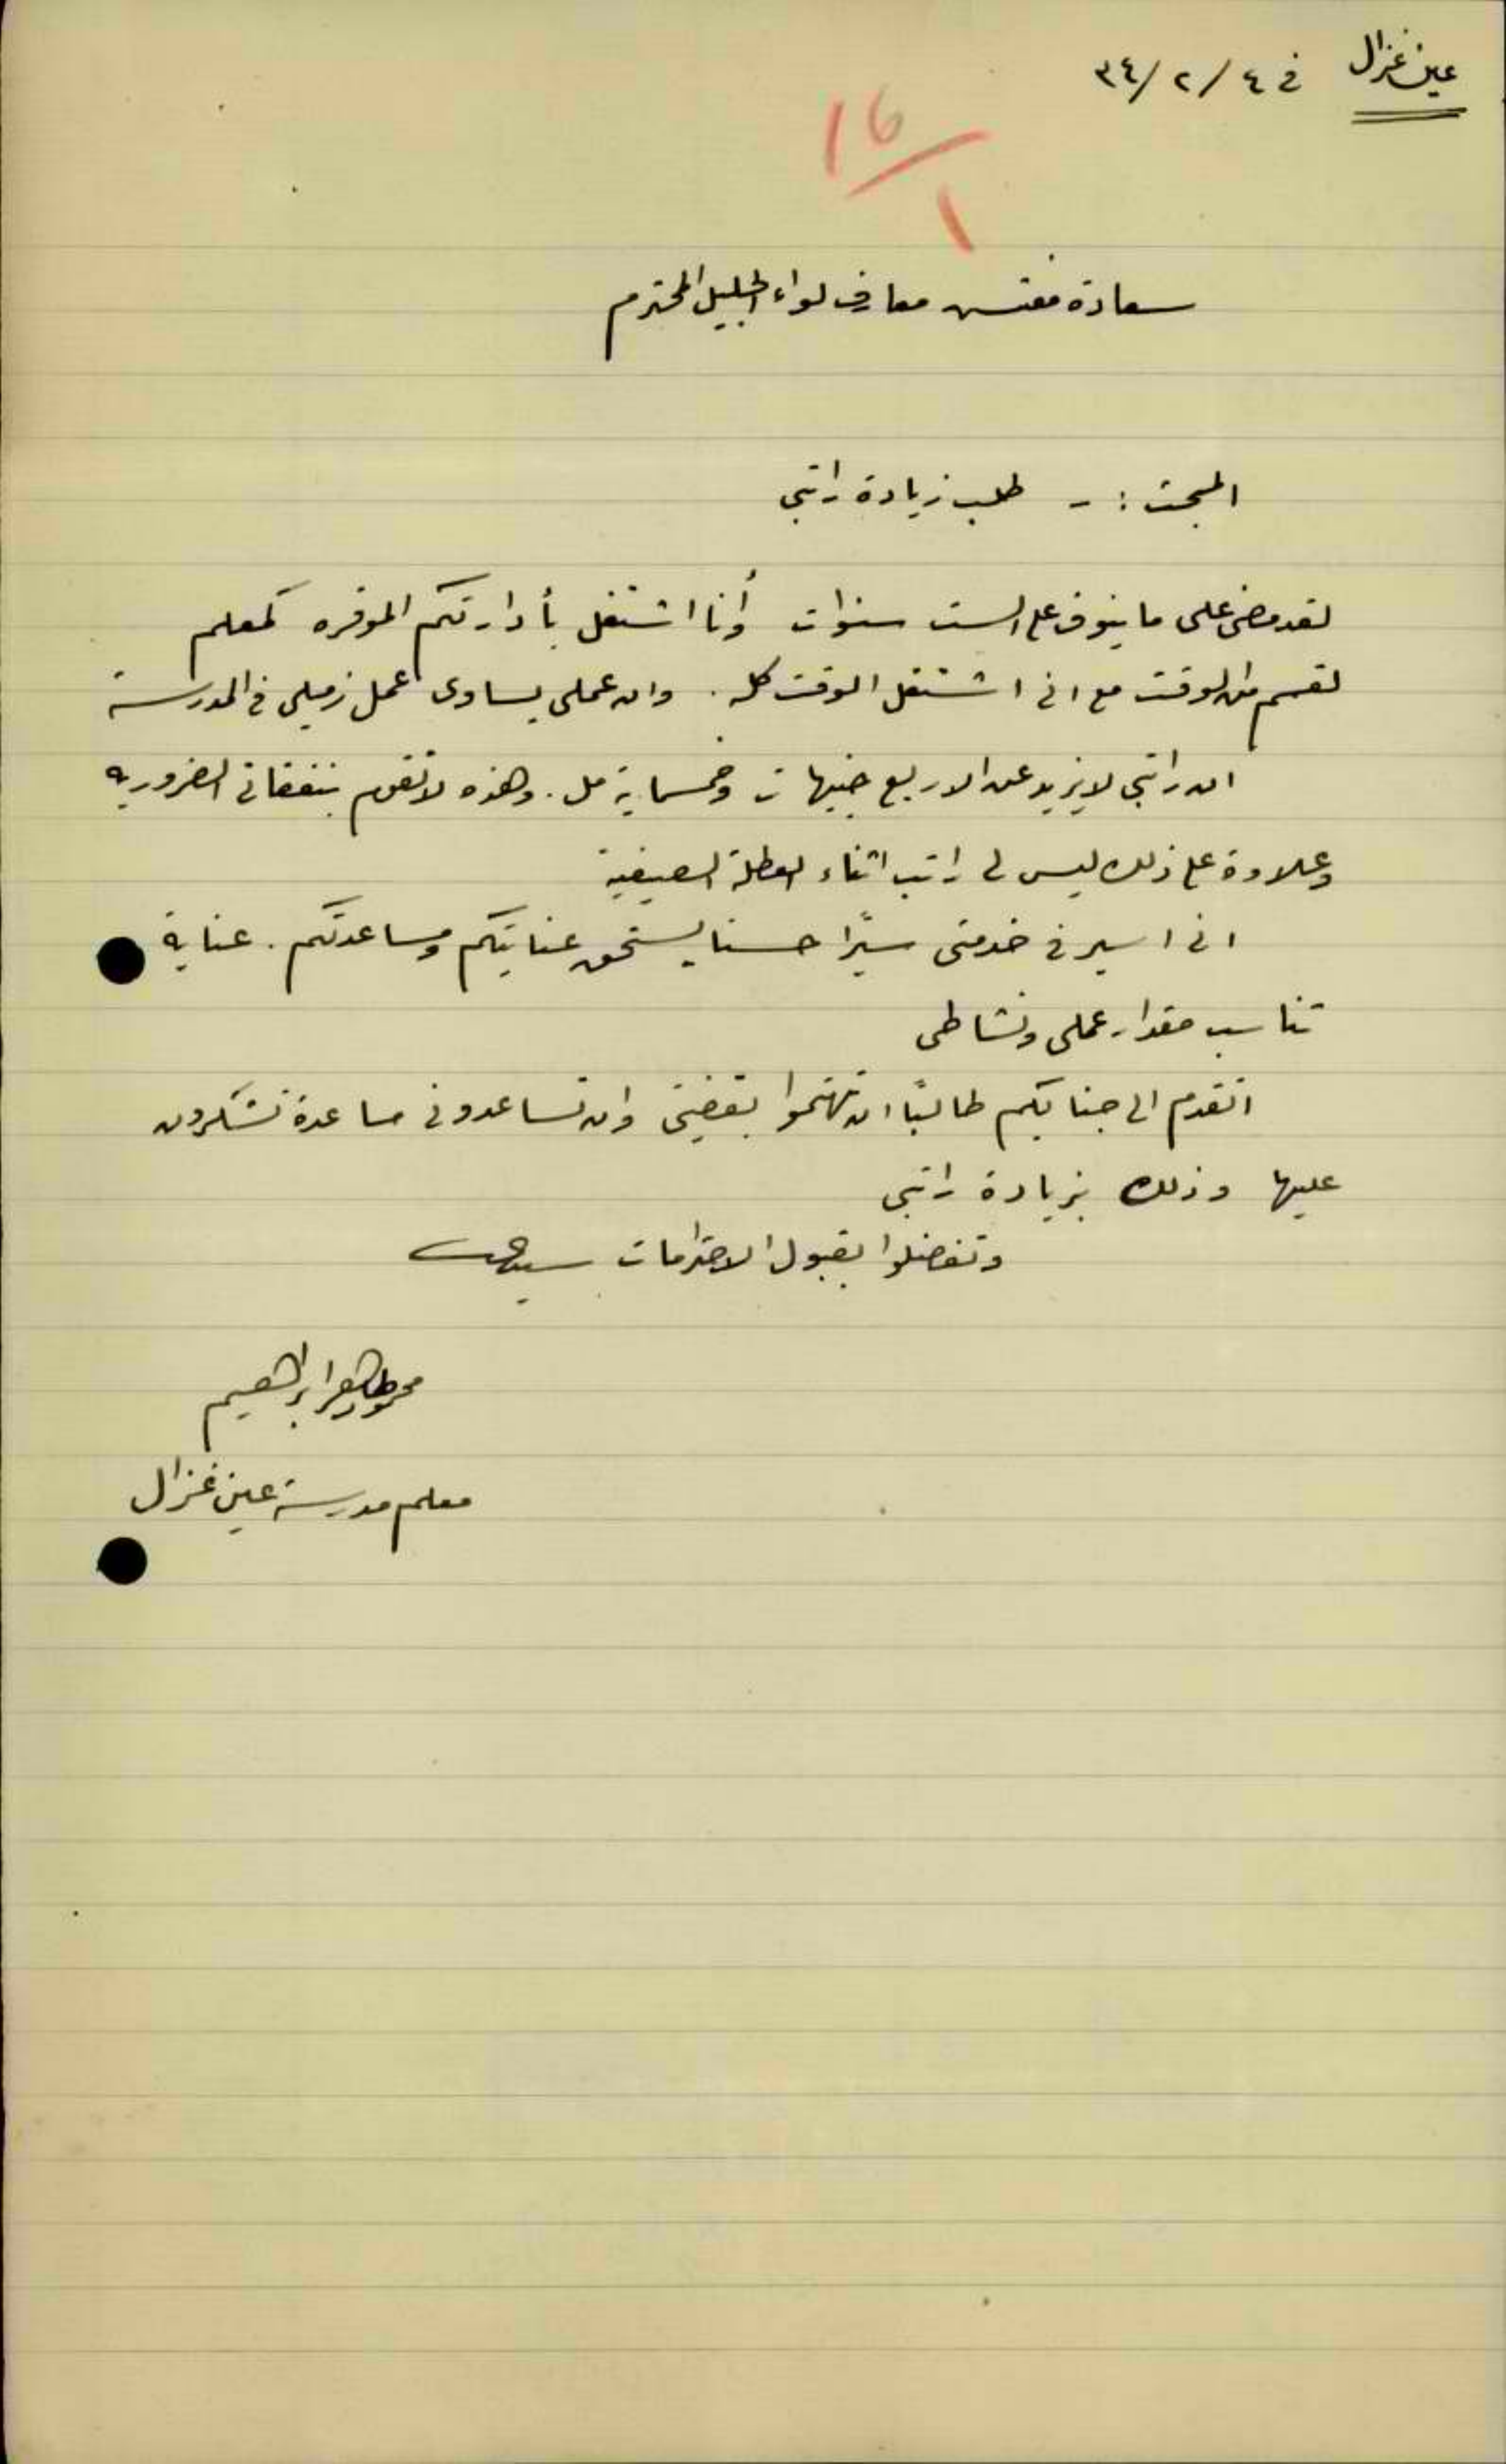 عين غزال في ٤/٢/٣٤
16/1
سعادة مفتش معارف لواء الجليل المحترم
المبحث :- طلب زيادة راتبي
لقد مضى علي ما ينوف على الست سنوات وأنا اشتغل بأدارتكم الموقره كمعلم
لقسم من الوقت مع اني اشتغل الوقت كله . وان عملي يساوى عمل زميلي في المدرسة
ان راتبي لا يزيد عن الاربع جنيهات وخمسماية مل . وهذه لا تقوم بنفقاتي الضروريه
وعلاوة على ذلك ليس لي راتب اثناء العطلة الصيفية
اني اسير في خدمتي سيرًا حسنا يستحق عنايتكم ومساعدتكم . عناية
تناسب مقدار عملي ونشاطي
اتقدم الى جنابكم طالبًا ان تهتموا بقضيتي وان تساعدوني مساعدة تشكرون
عليها وذلك بزيادة راتبي
وتفضلوا بقبول الاحترامات سيدي
محمود طاهر ابراهيم
معلم مدرسة عين غزال